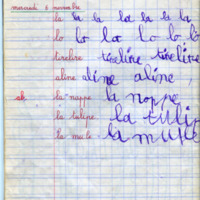 mercredi 8 novembre
la la la la la la la
lo lo lo lo lo lo
tireline tireline tireline
aline aline aline,
la nappe la nappe
la tulipe la tulip
la mule la mule